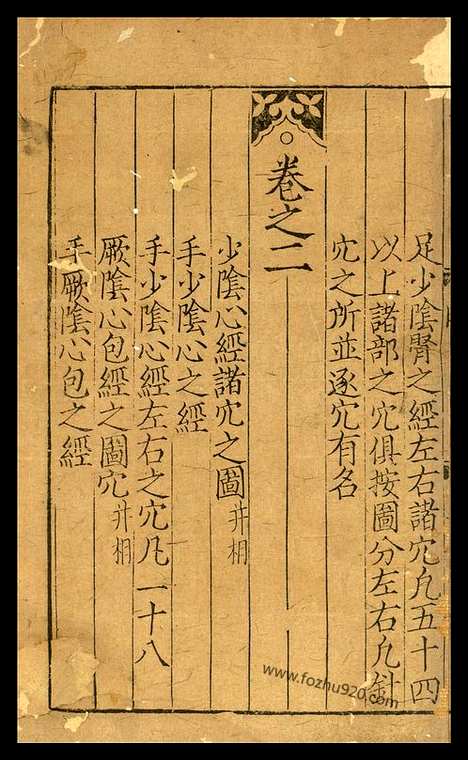 足少陰腎之經左右諸穴凡五十四
以上諸部之穴俱按圖分左右凡針
穴之所並逐穴有名
卷之二
少陰心經諸穴之圖并相
手少陰心之經
手少陰心經左右之穴凡一十八
厥陰心包經之圖穴并相
手厥陰心包之經
www.fozhu920.com